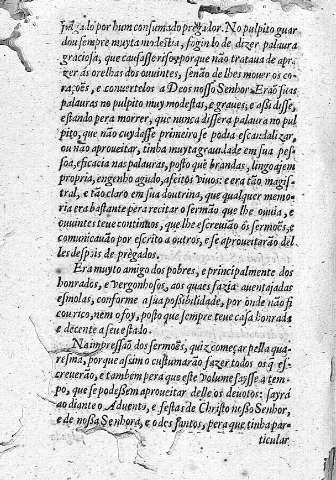 julgado por hum consumado prègador. No pulpito guar
dou sempre muyta modestia, fogindo de dizer palaura
graciosa, que causasse riso, porque não trataua de apra
zer ás orelhas dos ouuintes, senão de lhes mouer os co-
rações, e conuertelos a Deos nosso Senhor. Erão suas
palauras no pulpito muy modestas, e graues, e assi disse,
estando pera morrer, que nunca dissera palaura no pul
pito, que não cuydasse primeiro se podia escandalizar,
ou não aproueitar, tinha muyta grauidade em sua pes-
soa, efficacia nas palauras, posto que brandas, lingoajem
propria, engenho agudo, afeitos viuos: e era tão magis-
tral, e tão claro em sua doutrina, que qualquer memo-
ria era bastante pera recitar o sermão que lhe ouuia, e
ouuintes teue continuos, que lhe escreuião ôs sermões, e
comunicauão por escrito a outros, e se aproueitarão del
les despois de prègados.
Era muyto amigo dos pobres, e principalmente dos
honrados, e vergonhosos, aos quaes fazia auentajadas
esmolas, conforme a sua possibilidade, por onde não fi
cou rico, nem o foy, posto que sempre teue casa honrada
e decente a seu estado.
Na impressão dos sermões, quiz começar pella qua-
resma, porque assim o custumarão fazer todos os q̃ es-
creuerão, e tambem pera que este volume saysse a tem-
po, que se podessem aproueitar delle os deuotos: sayrá
ao diante o Aduento, e festas de Christo nosso Senhor,
e de nossa Senhora, e o des santos, pera que tinha par-
ticular